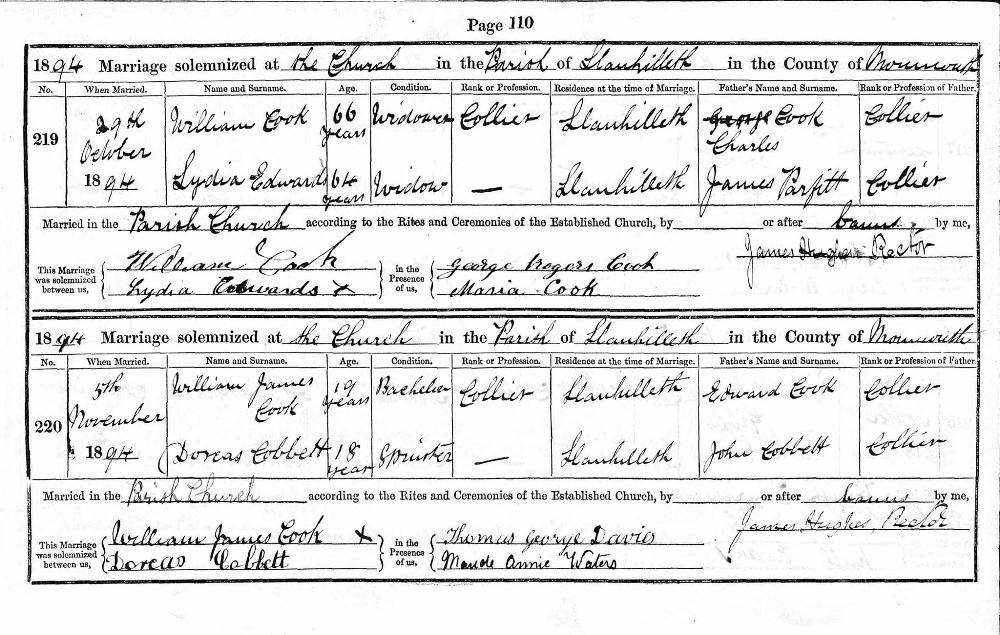 Page 110
1894 Marriage solemnized at the Church in the Parish of Llanhilleth in the County of Monmouth
No. When Married. Name and Surname. Age. Condition. Rank or Profession. Residence at the time of Marriage. Father's Name and Surname. Rank or Profession of Father.
219 29th October 1894 William Cook 66 years Widower Collier Llanhilleth George Cook Charles Collier
Lydia Edwards 64 years Widow — Llanhilleth James Parfitt Collier
Married in the Parish Church according to the Rites and Ceremonies of the Established Church, by or after banns by me,
James Hughes Rector
This Marriage was solemnized between us, William Cook Lydia Edwards x in the Presence of us, George Rogers Cook Maria Cook
1894 Marriage solemnized at the Church in the Parish of Llanhilleth in the County of Monmouth
No. When Married. Name and Surname. Age. Condition. Rank or Profession. Residence at the time of Marriage. Father's Name and Surname. Rank or Profession of Father.
220 5th November 1894 William James Cook 19 years Bachelor Collier Llanhilleth Edward Cook Collier
Dorcas Cobbett 18 year Spinster — Llanhilleth John Cobbett Collier
Married in the Parish Church according to the Rites and Ceremonies of the Established Church, by or after banns by me,
James Hughes, Rector
This Marriage was solemnized between us, William James Cook x Dorcas Cobbett in the Presence of us, Thomas George Davies Maude Annie Waters